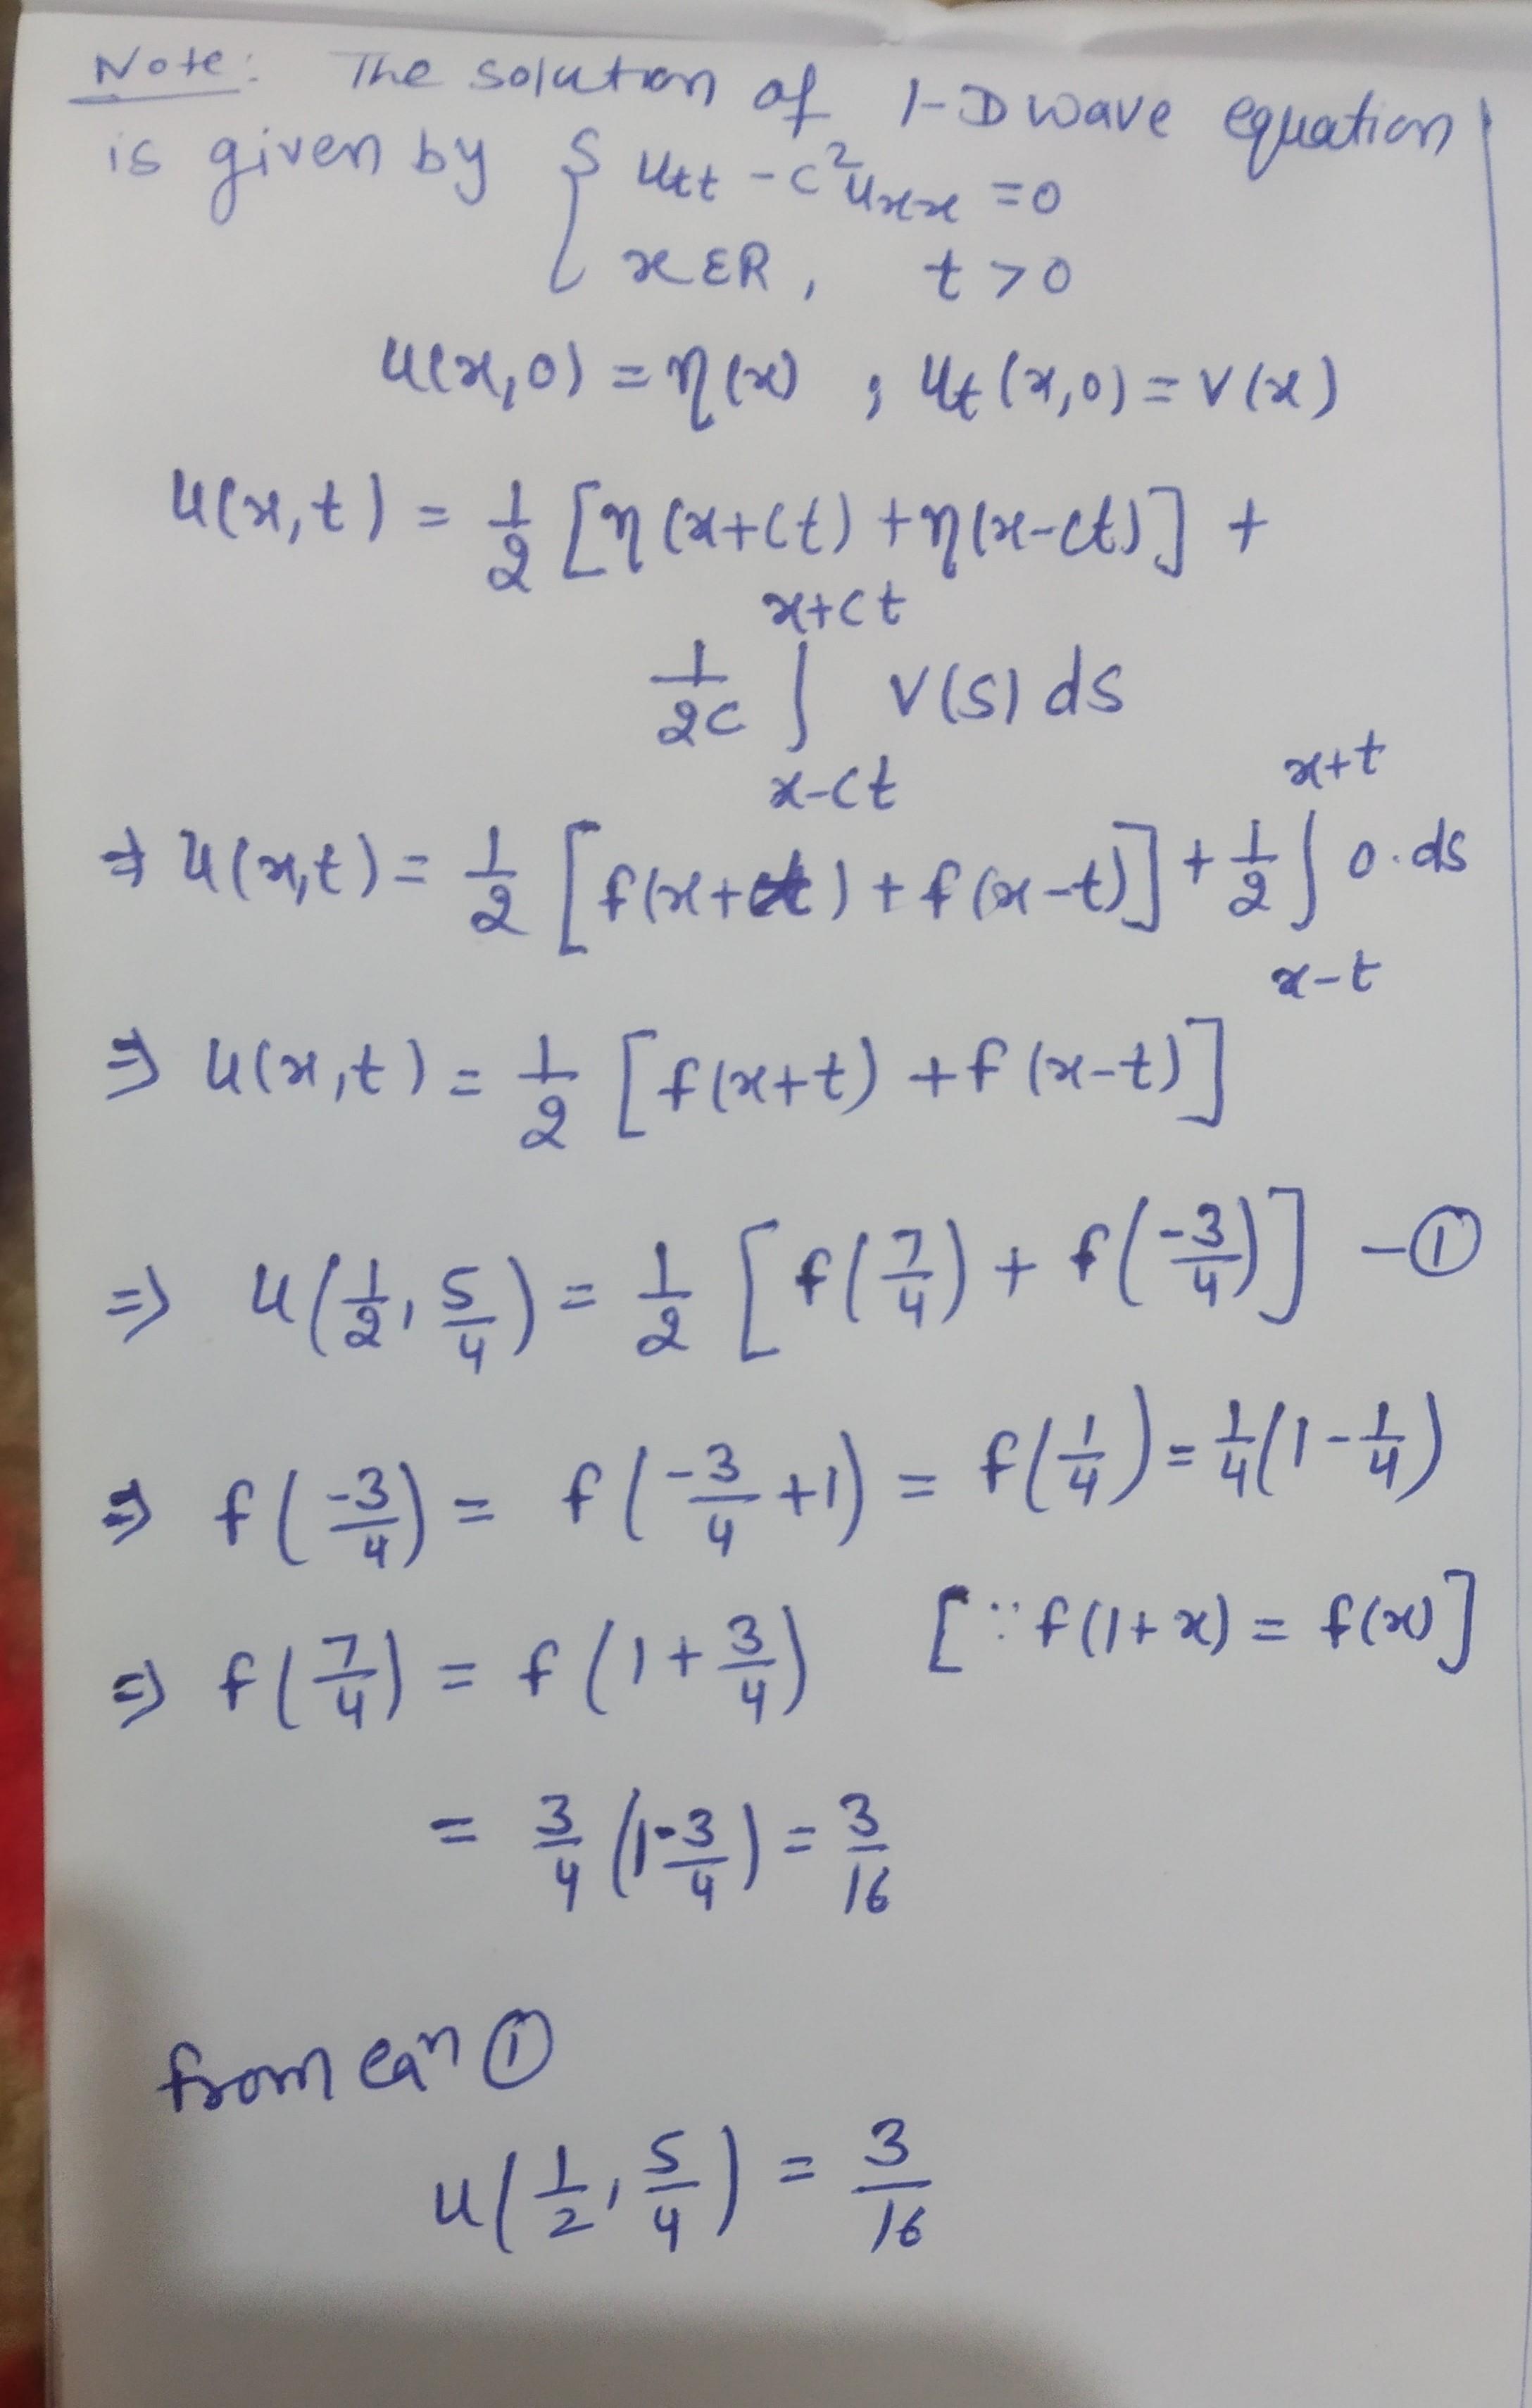 Note: The solution of 1-D wave equation
is given by { utt - c²uxx = 0
x ∈ R, t > 0
u(x,0) = η(x) ; ut(x,0) = v(x)
u(x,t) = 1/2 [η(x+ct) + η(x-ct)] +
1/2c ∫_{x-ct}^{x+ct} v(s) ds
⇒ u(x,t) = 1/2 [f(x+t) + f(x-t)] + 1/2 ∫_{x-t}^{x+t} 0.ds
⇒ u(x,t) = 1/2 [f(x+t) + f(x-t)]
⇒ u(1/2, 5/4) = 1/2 [f(7/4) + f(-3/4)] - ①
⇒ f(-3/4) = f(-3/4 + 1) = f(1/4) = 1/4(1 - 1/4)
⇒ f(7/4) = f(1 + 3/4) [∵ f(1+x) = f(x)]
= 3/4 (1 - 3/4) = 3/16
from eqn ①
u(1/2, 5/4) = 3/16